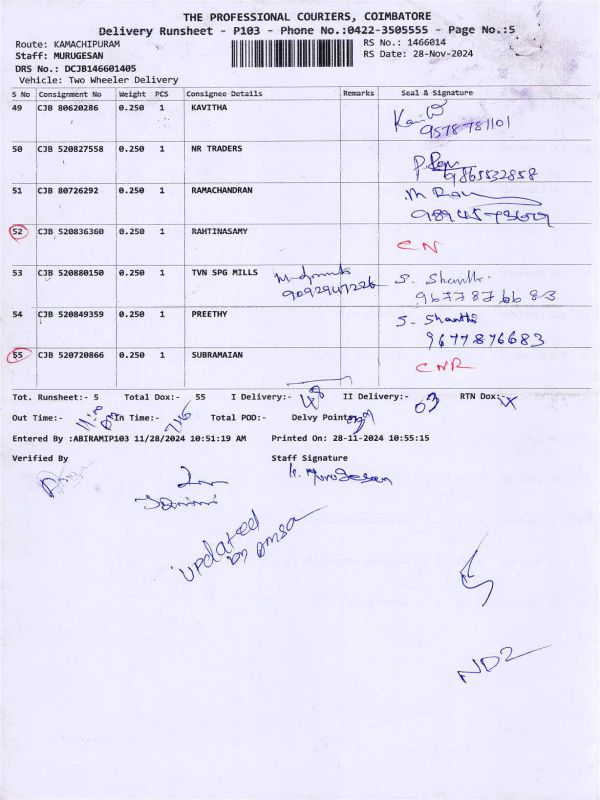 THE PROFESSIONAL COURIERS, COIMBATORE
Delivery Runsheet - P103 - Phone No.:0422-3505555 - Page No.:5
Route: KAMACHIPURAM RS No.: 1466014
Staff: MURUGESAN RS Date: 28-Nov-2024
DRS No.: DCJB146601405
Vehicle: Two Wheeler Delivery
S No Consignment No Weight PCS Consignee Details Remarks Seal & Signature
49 CJB 80620286 0.250 1 KAVITHA
9578781101
50 CJB 520827558 0.250 1 NR TRADERS
9865532858
51 CJB 80726292 0.250 1 RAMACHANDRAN
52 CJB 520836360 0.250 1 RAHTINASAMY CN
53 CJB 520880150 0.250 1 TVN SPG MILLS S. Shanthi
9677876683
54 CJB 520849359 0.250 1 PREETHY S. Shanthi
9677876683
55 CJB 520720866 0.250 1 SUBRAMAIAN CNR
Tot. Runsheet:- 5 Total Dox:- 55 I Delivery:- 48 II Delivery:- 03 RTN Dox:- 4
Out Time:- In Time:- Total POD:- Delvy Point:-
Entered By :ABIRAMIP103 11/28/2024 10:51:19 AM Printed On: 28-11-2024 10:55:15
Verified By Staff Signature
K. Murugesan
updated
ND2